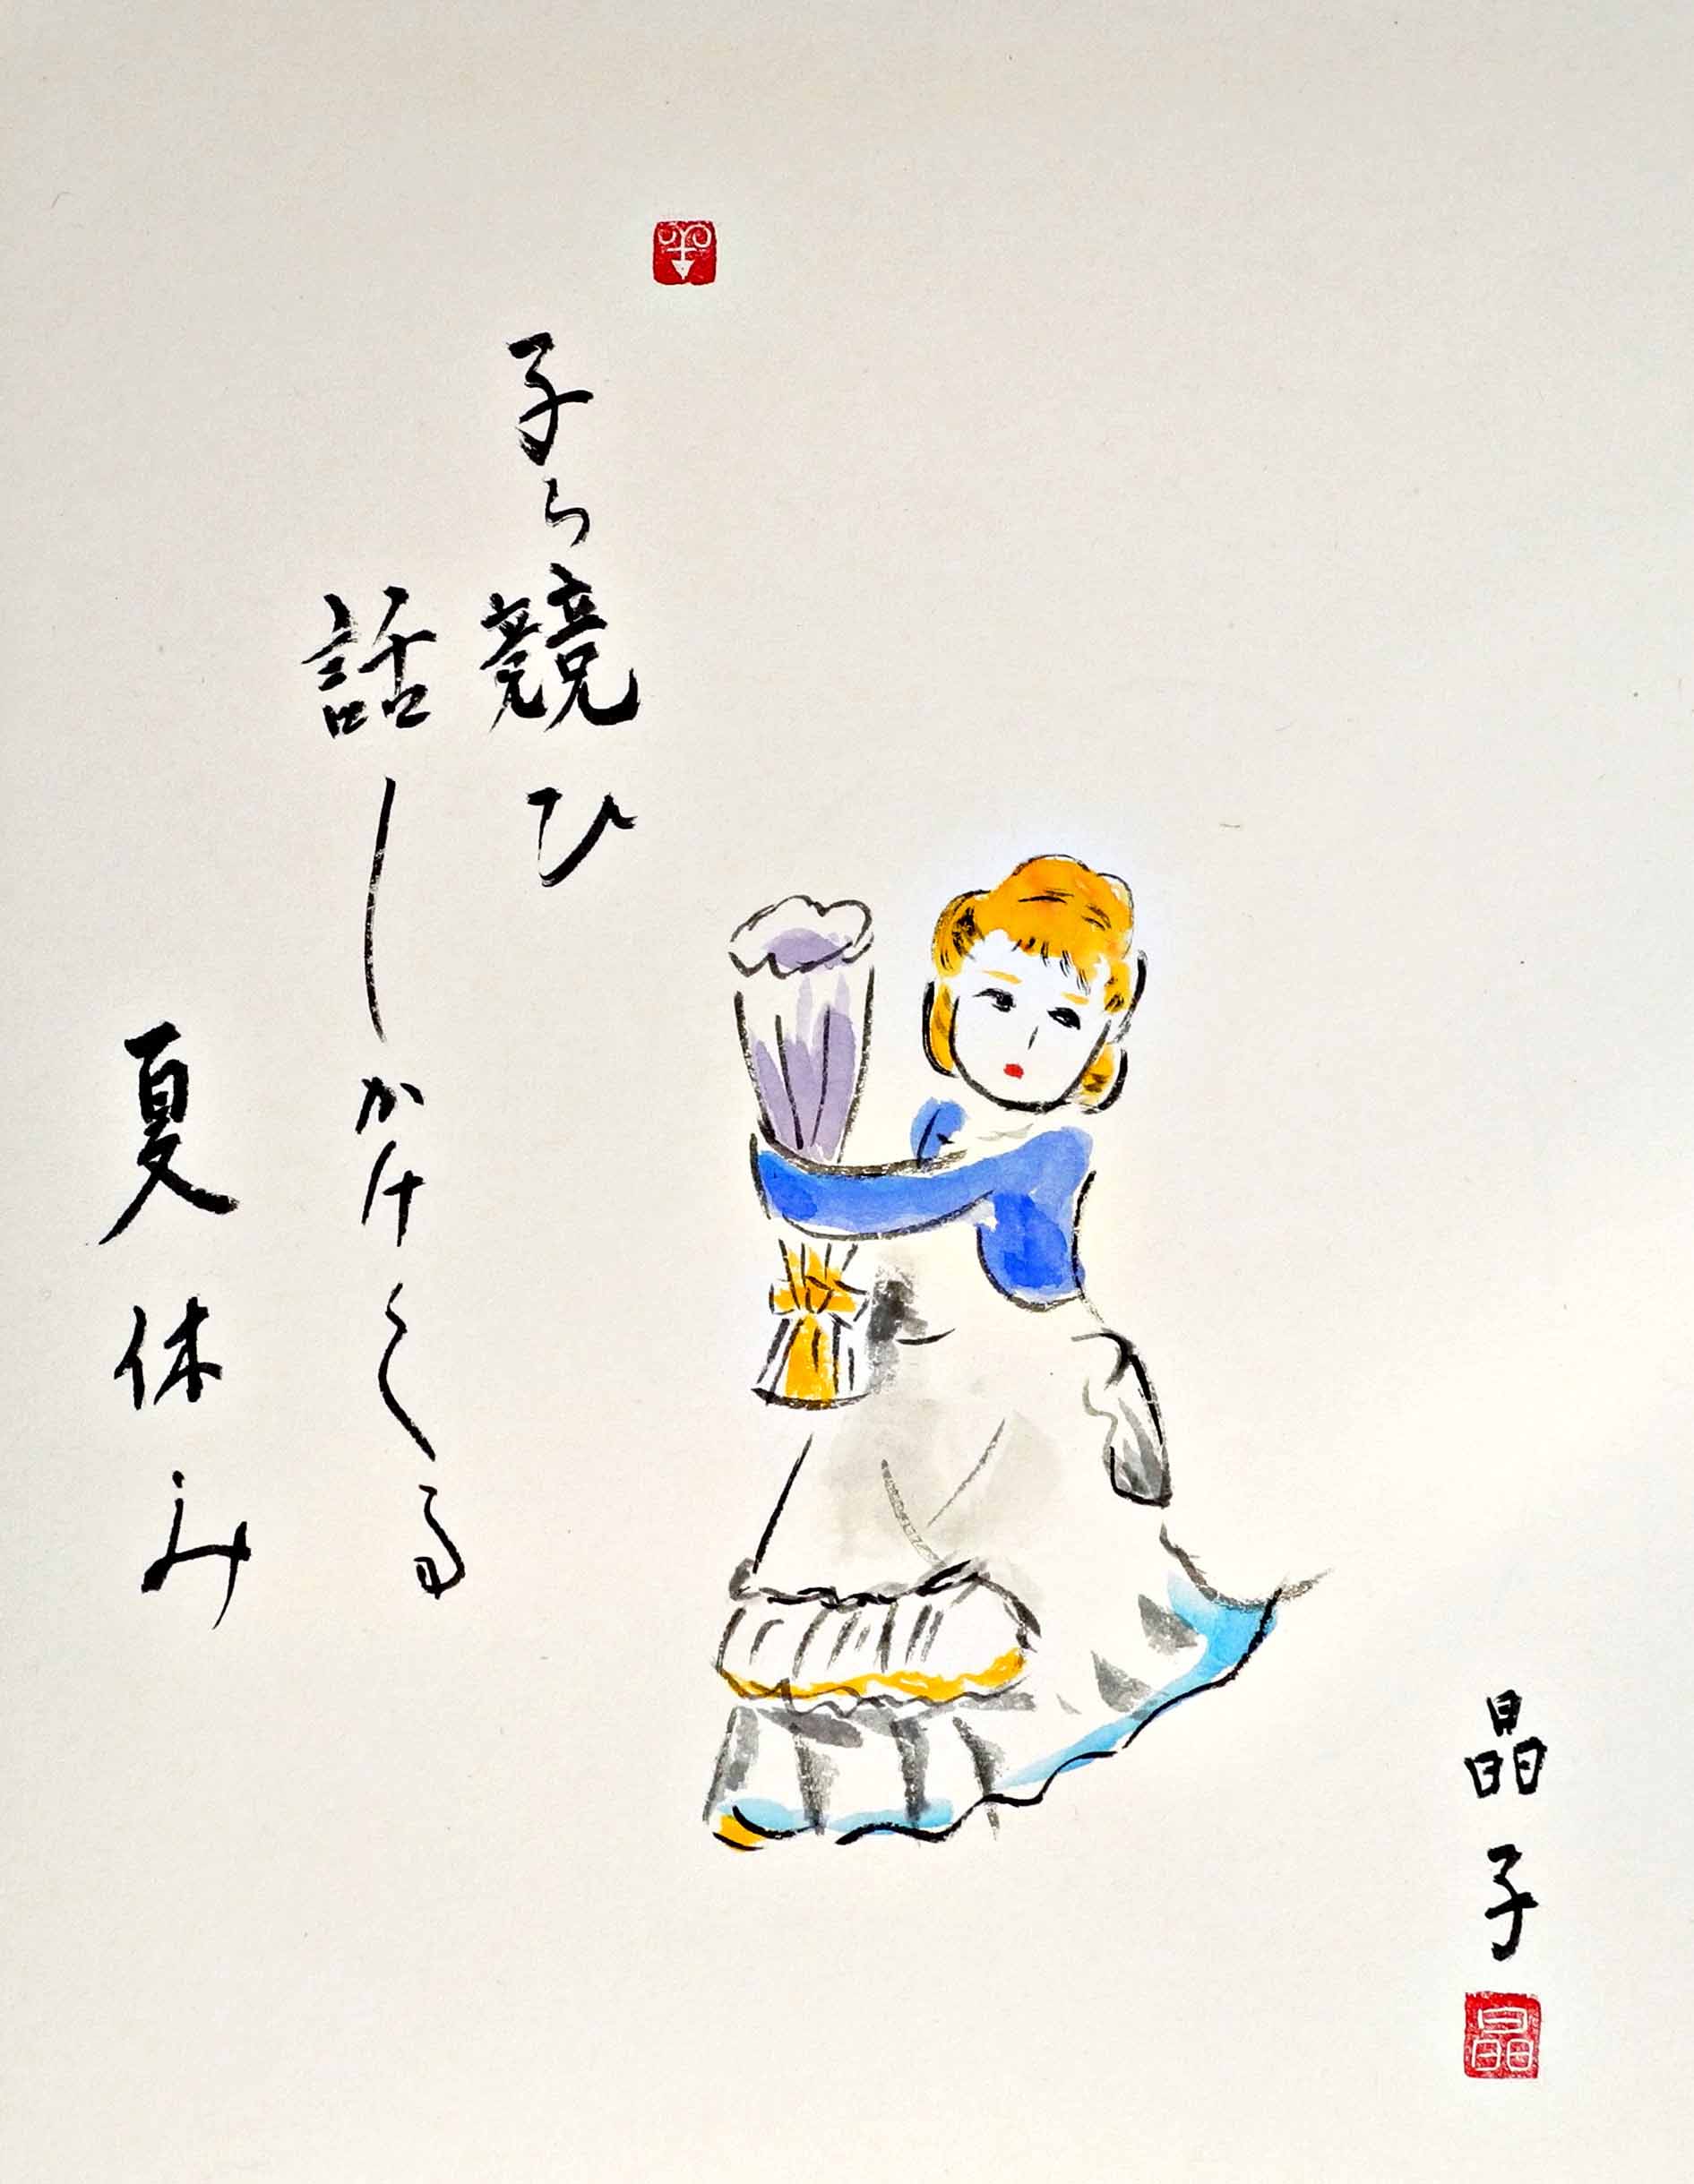 子ら競ひ
話しかけくる
夏休み
晶子
晶